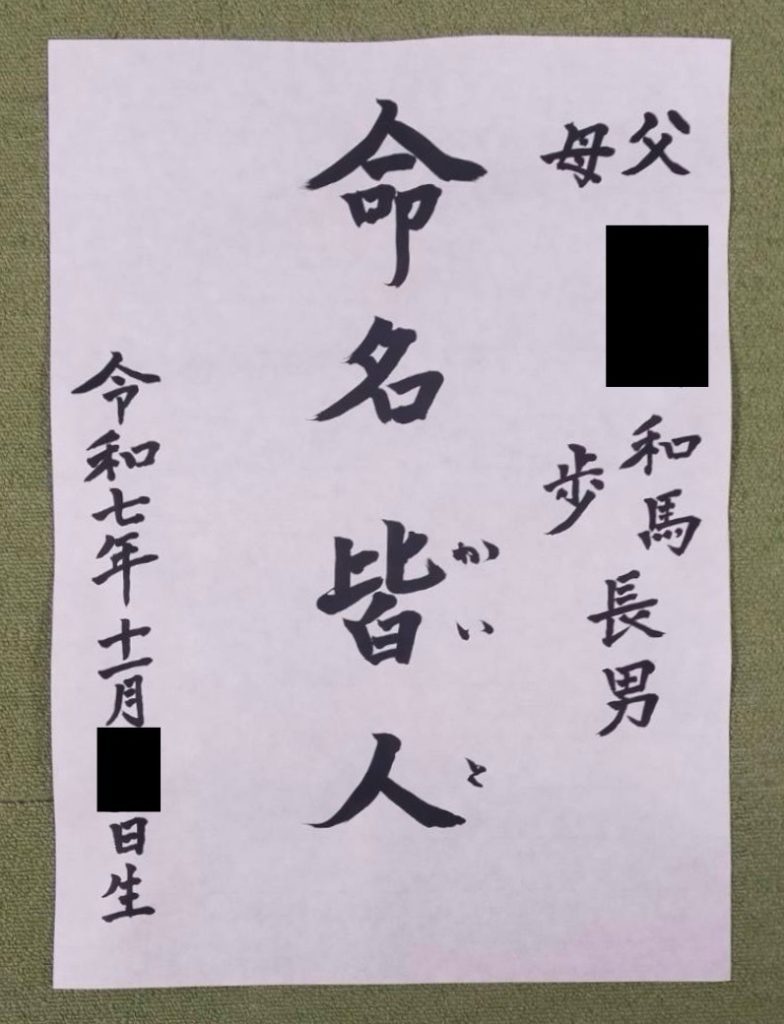 父 和馬
母 歩
長男
命名 皆人
かいと
令和七年十一月 日生